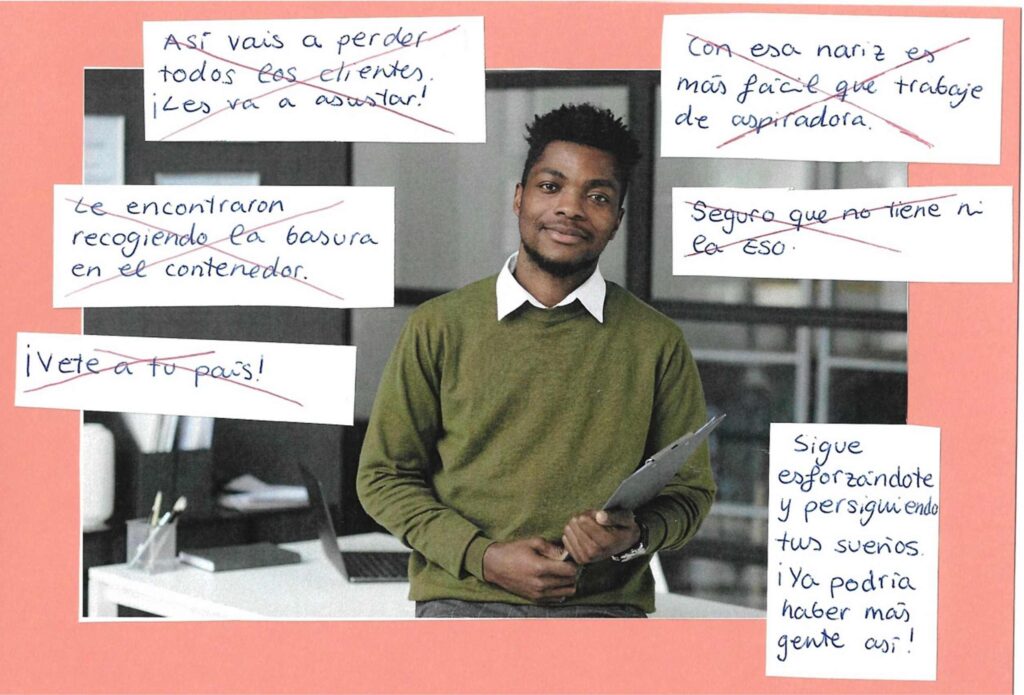 Así vais a perder
todos los clientes.
¡Les va a asustar!
Con esa nariz es
más fácil que trabaje
de aspiradora.
Le encontraron
recogiendo la basura
en el contenedor.
Seguro que no tiene ni
la ESO.
¡Vete a tu país!
Sigue
esforzándote
y persiguiendo
tus sueños.
¡Ya podría
haber más
gente así!